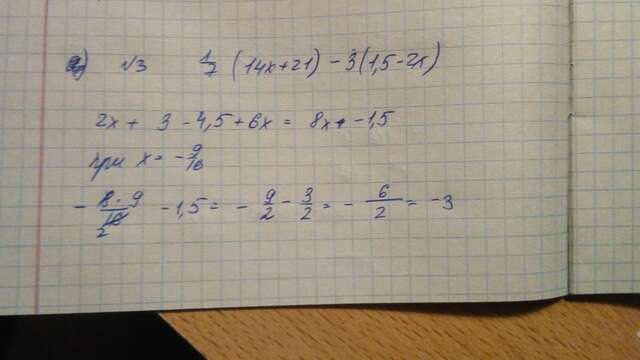 а) √3 1/7 (14x+21) - 3(1,5-2x)
2x + 3 - 4,5 + 6x = 8x - 1,5
при x = -9/16
- 8·9/16 2 - 1,5 = - 9/2 - 3/2 = - 6/2 = -3